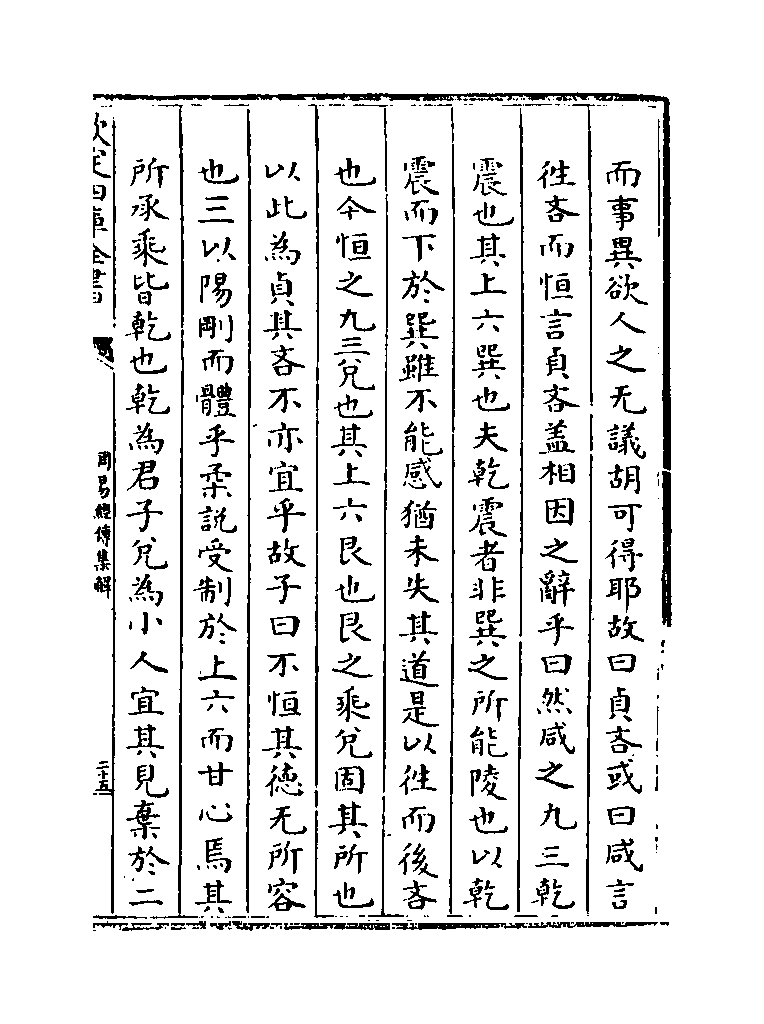 而事異欲人之无議胡可得耶故曰貞吝或曰咸言
徃吝而恒言貞吝葢相因之辭乎曰然咸之九三乾
震也其上六巽也夫乾震者非巽之所能陵也以乾
震而下於巽雖不能感猶未失其道是以徃而後吝
也今恒之九三兊也其上六艮也艮之乘兊固其所也
以此為貞其吝不亦宜乎故子曰不恒其徳无所容
也三以陽剛而體乎柔説受制於上六而甘心焉其
所承乘皆乾也乾為君子兊為小人宜其見棄於二
欽定四庫全書
周易經傳集解
二十五